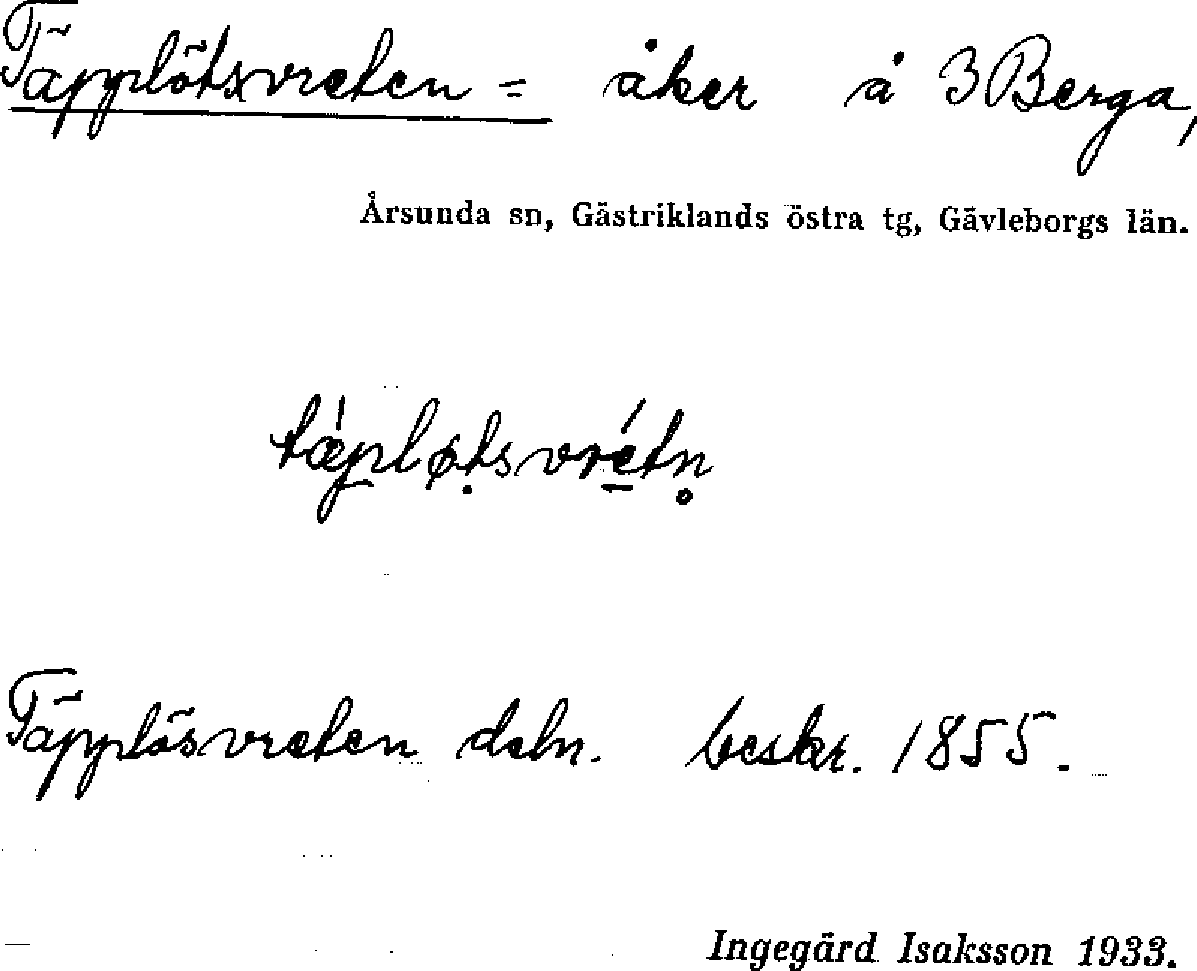 Täpplötsvreten = åker å 3 Berga,
Årsunda sn, Gästriklands östra tg, Gävleborgs län.
tæ̀pløtsvrétn̥
Täpplösvreten dsbn. beskr. 1855.
Ingegärd Isaksson 1933.